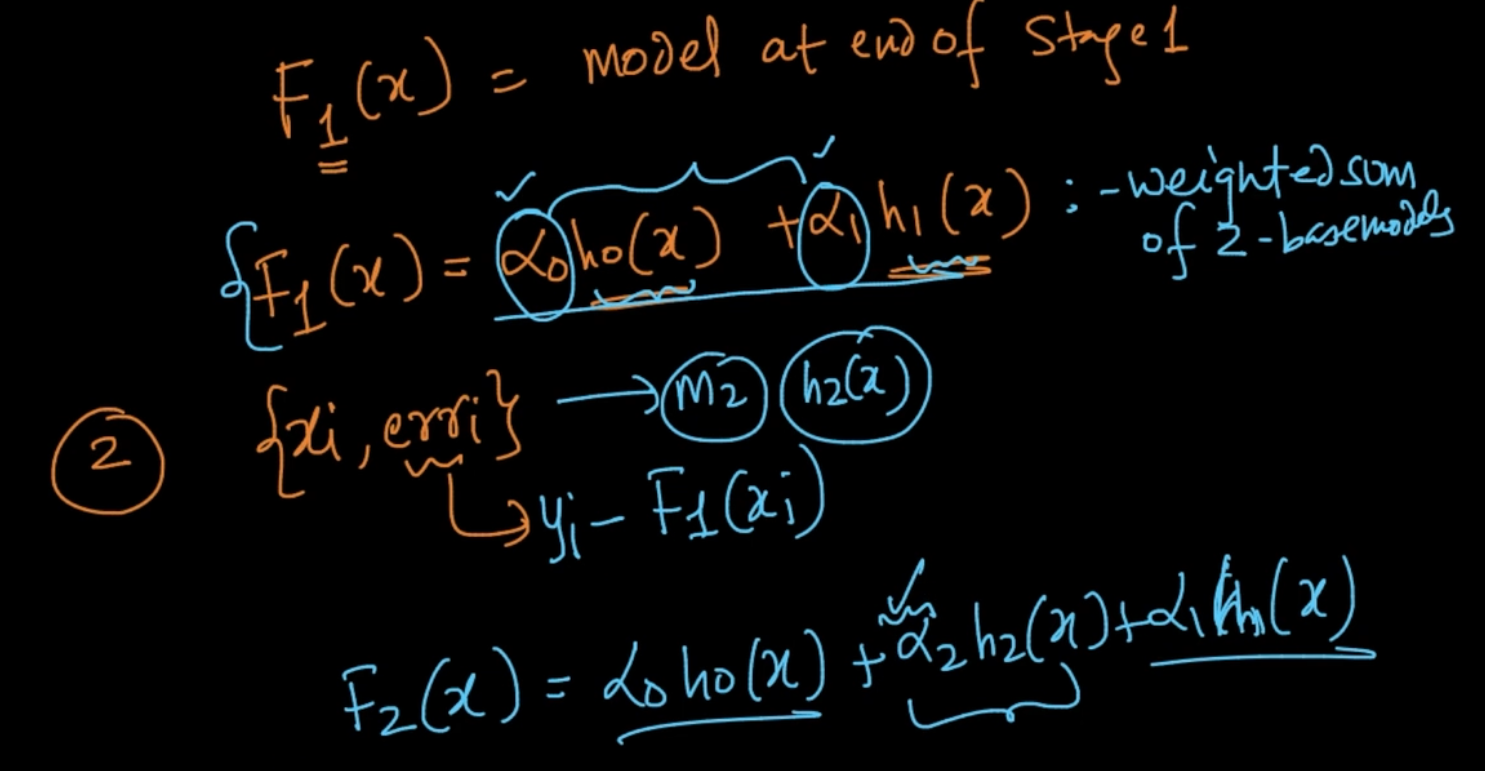 F₁(x) = model at end of Stage 1
F₁(x) = α₀h₀(x) + α₁h₁(x) : - weighted sum
of 2-basemodels
② {xᵢ, errᵢ} → M₂ h₂(x)
yᵢ - F₁(xᵢ)
F₂(x) = α₀h₀(x) + α₂h₂(x) + α₁h₁(x)